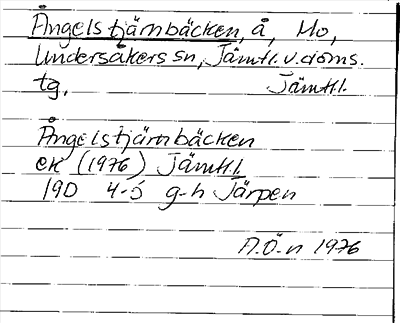 Ångelstjärnbäcken, å, Mo,
Undersåkers sn, Jämtl. v. doms.
tg. Jämtl.
Ångelstjärnbäcken
ek (1976) Jämtl.
19D 4-5 g-h Järpen
A.Ö-n 1976